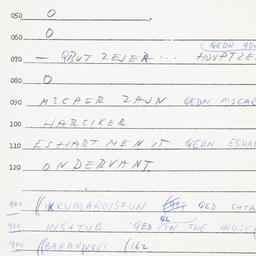 050 O
060 O
QEDN HOU
070 — QBUT ZEJER ... HOUPTZE
080 O
090 MICAER ZAJN QEDN MICAR
100 HARCIKER
110 ESHART MEN IT QEDN ESHA
120 ONDERVANT.
900 ((IN KUMARDISFUN QED SHTA
900 INSHTUB QED IN THE HOUSE
900 ((BARAV (162